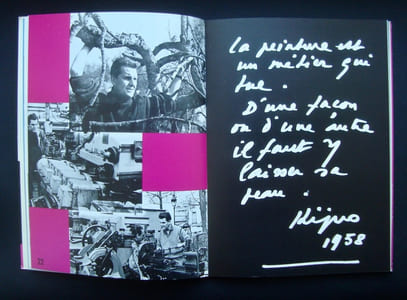 La peinture est
un métier qui
tue.
D'une façon
ou d'une autre
il faut y
laisser sa
peau.
Kijno
1958
22